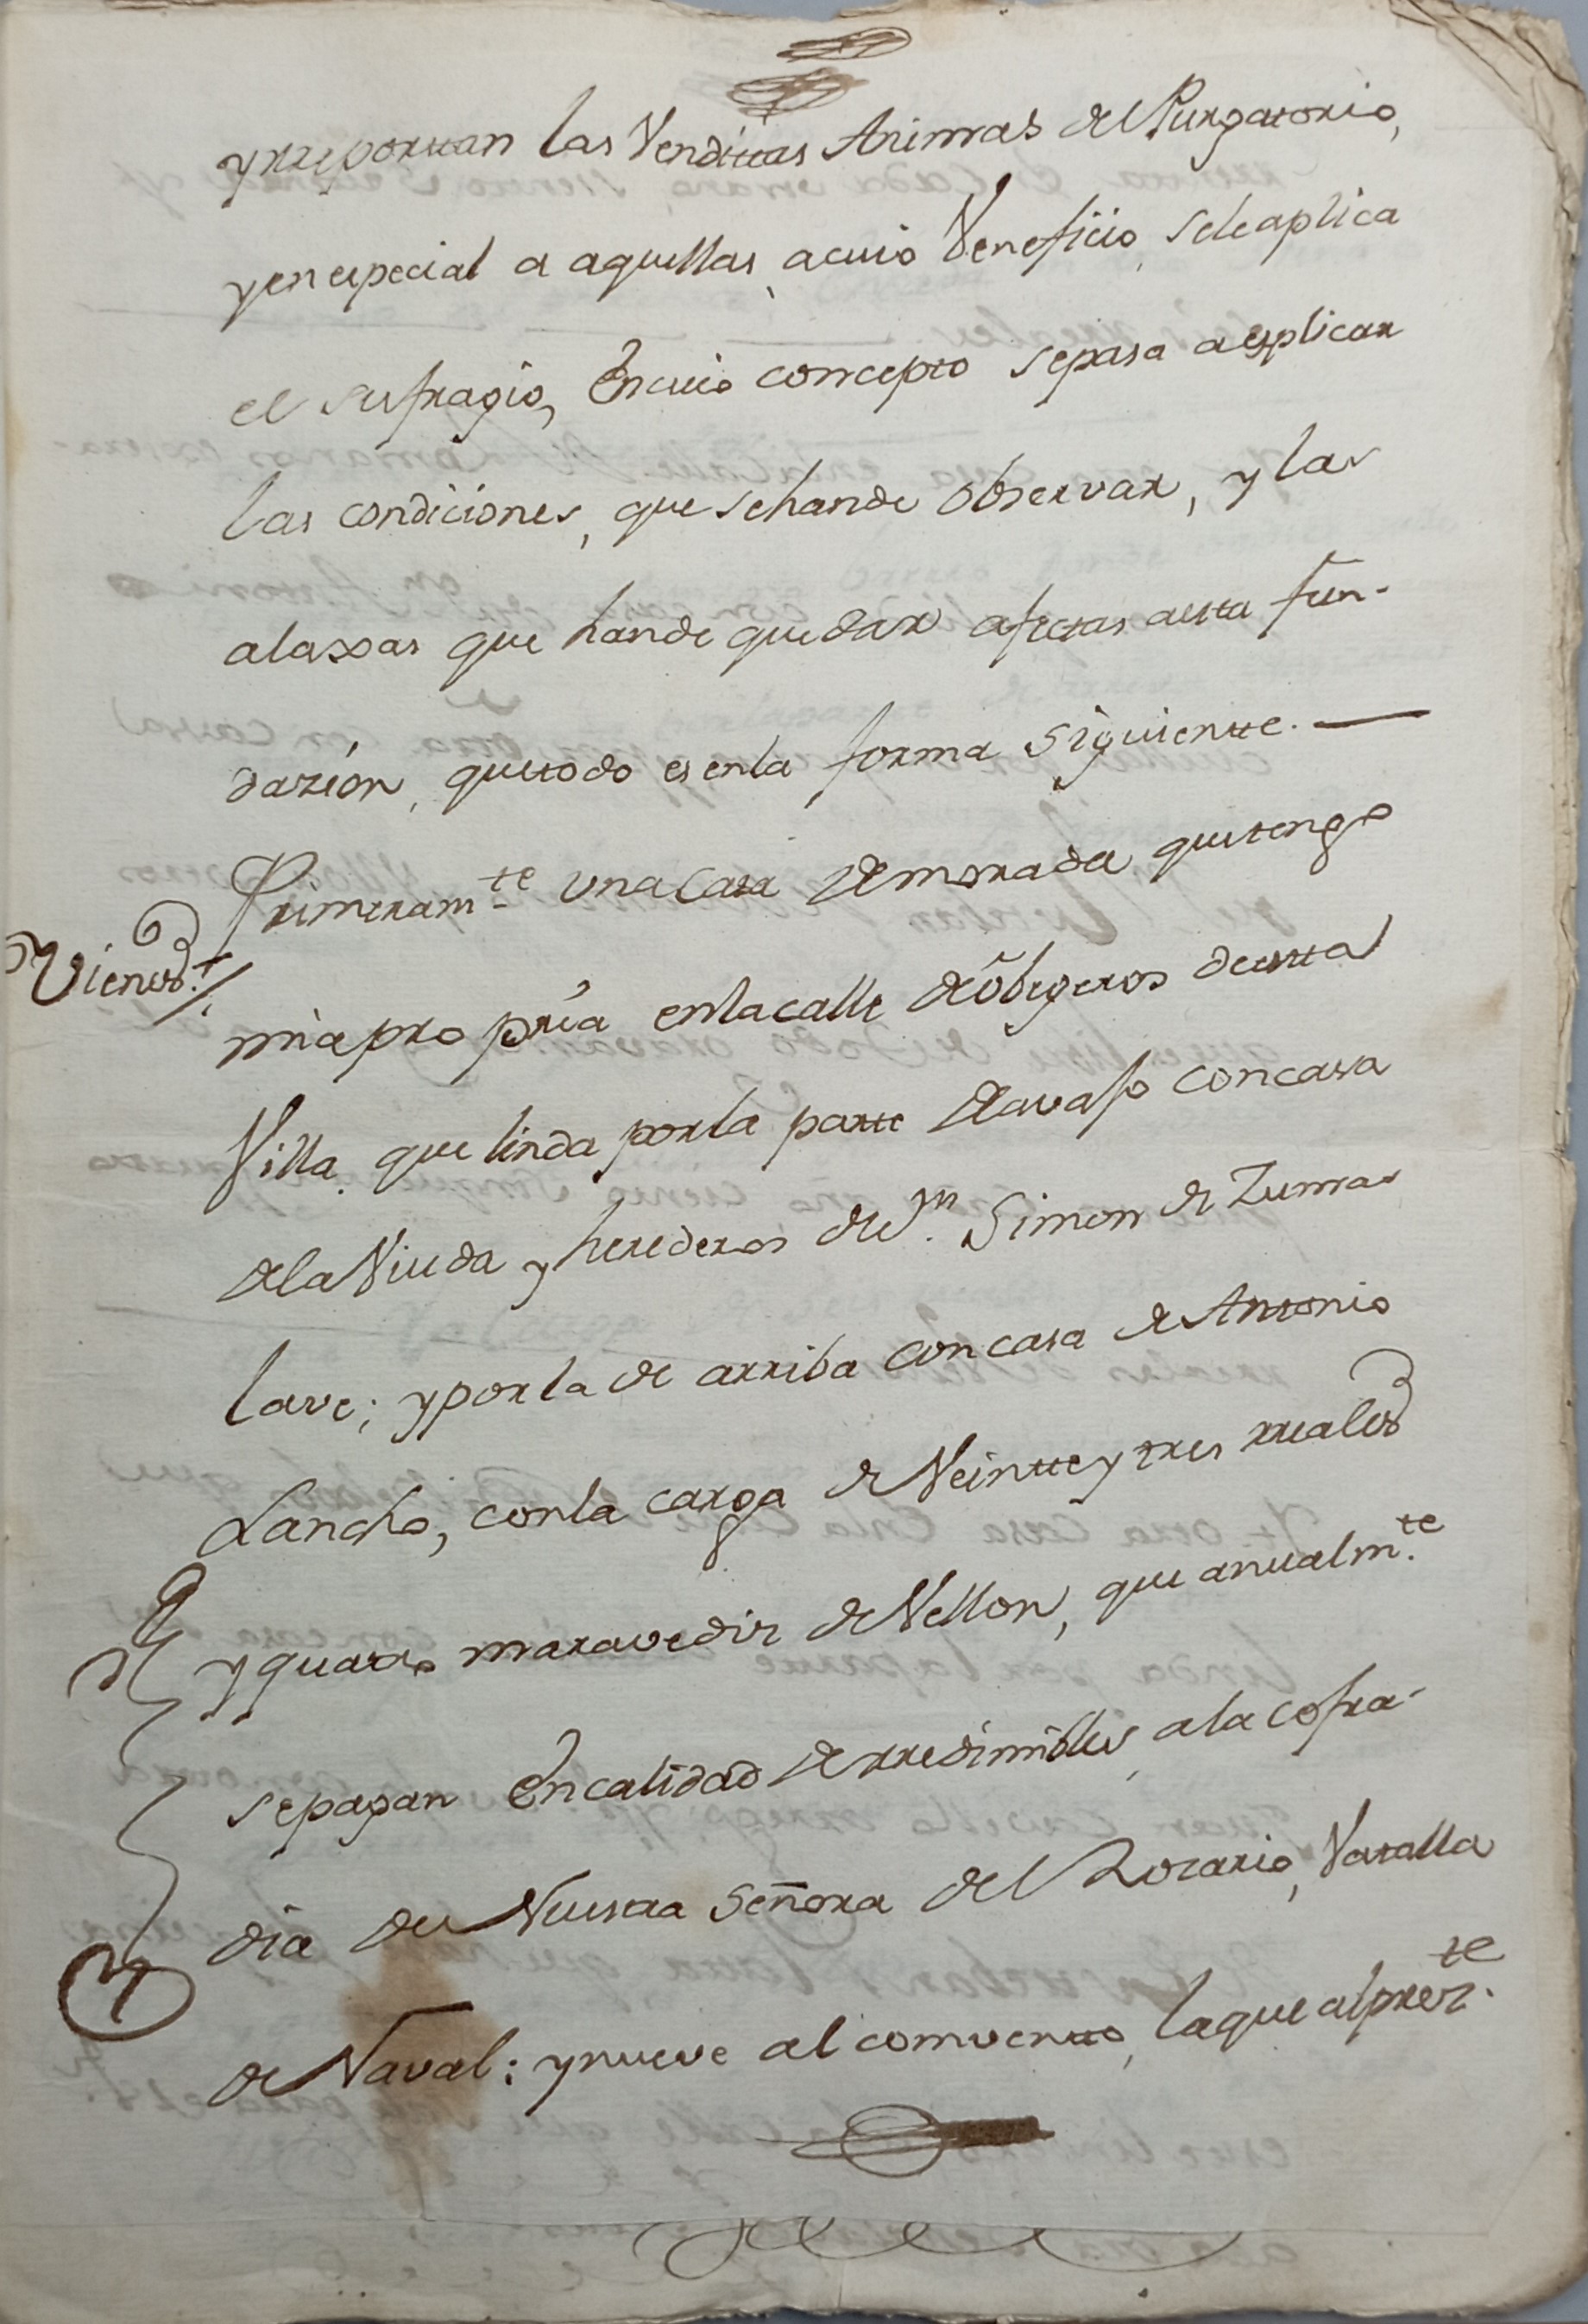 y rreporttan las Vendittas Animas del Purgatorio,
y en especial a aquellas, a cuio Veneficio, se le aplica
el sufragio, En cuio concepto se pasa a esplicar
las condiciones, que se han de observar, y las
alaxas que han de quedar afectas a esta fun-
dazión, que todo es en la forma siguientte. —
Primeram.te una Casa de morada que tengo
Vienes./.
mia propria en la calle de obegeros de estta
Villa, que linda por la partte de avajo con casa
de la Viuda y herederos de D.n Simon de Zuma
lave; y por la de arriba con casa de Antonio
Lancho, con la carga de Veintte y tres rreales
y quatro maravedis de Vellon, que anualm.te
se pagan En calidad de rredimibles, a la cofra-
dia de Nuestra Señora del Rosario, Vatalla
de Naval: y nueve al comventto, la que al pres.te